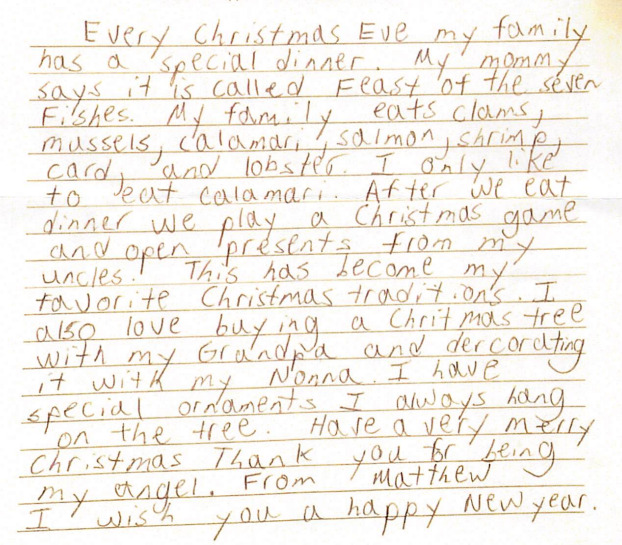 Every Christmas Eve my family
has a special dinner. My mommy
says it is called Feast of the seven
Fishes. My family eats clams,
mussels, calamari, salmon, shrimp,
card, and lobster. I only like
to eat calamari. After we eat
dinner we play a Christmas game
and open presents from my
uncles. This has become my
favorite Christmas traditions. I
also love buying a Chritmas tree
with my Grandpa and dercorating
it with my Nonna. I have
special ornaments I always hang
on the tree. Have a very merry
Christmas Thank you for being
my angel. From Matthew
I wish you a happy New year.